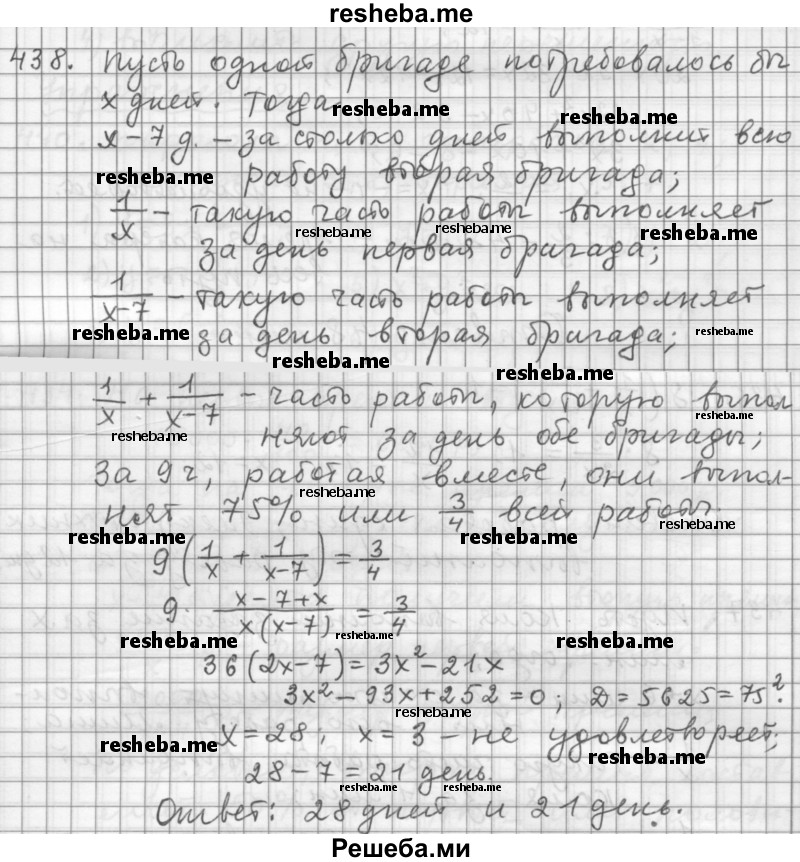 resheba.me
438. Пусть одной бригаде потребовалось бы
x дней. Тогда
resheba.me
resheba.me
x – 7 д. – за столько дней выполнит всю
resheba.me
работу вторая бригада;
1/x – такую часть работы выполняет
resheba.me
resheba.me
resheba.me
за день первая бригада;
1/(x–7) – такую часть работы выполняет
resheba.me
за день вторая бригада;
resheba.me
resheba.me
resheba.me
1/x + 1/(x–7) – часть работы, которую выпол
resheba.me
няют за день обе бригады;
За 9 г, работая вместе, они выпол-
resheba.me
нят 75% или 3/4 всей работы.
resheba.me
resheba.me
resheba.me
9(1/x + 1/(x–7)) = 3/4
9 · (x–7+x)/(x(x–7)) = 3/4
resheba.me
resheba.me
resheba.me
36(2x–7) = 3x² – 21x
3x² – 93x + 252 = 0; D = 5625 = 75².
resheba.me
x = 28; x = 3 – не удовлетворяет;
resheba.me
resheba.me
28 – 7 = 21 день.
resheba.me
resheba.me
Ответ: 28 дней и 21 день.
Решеба.ми